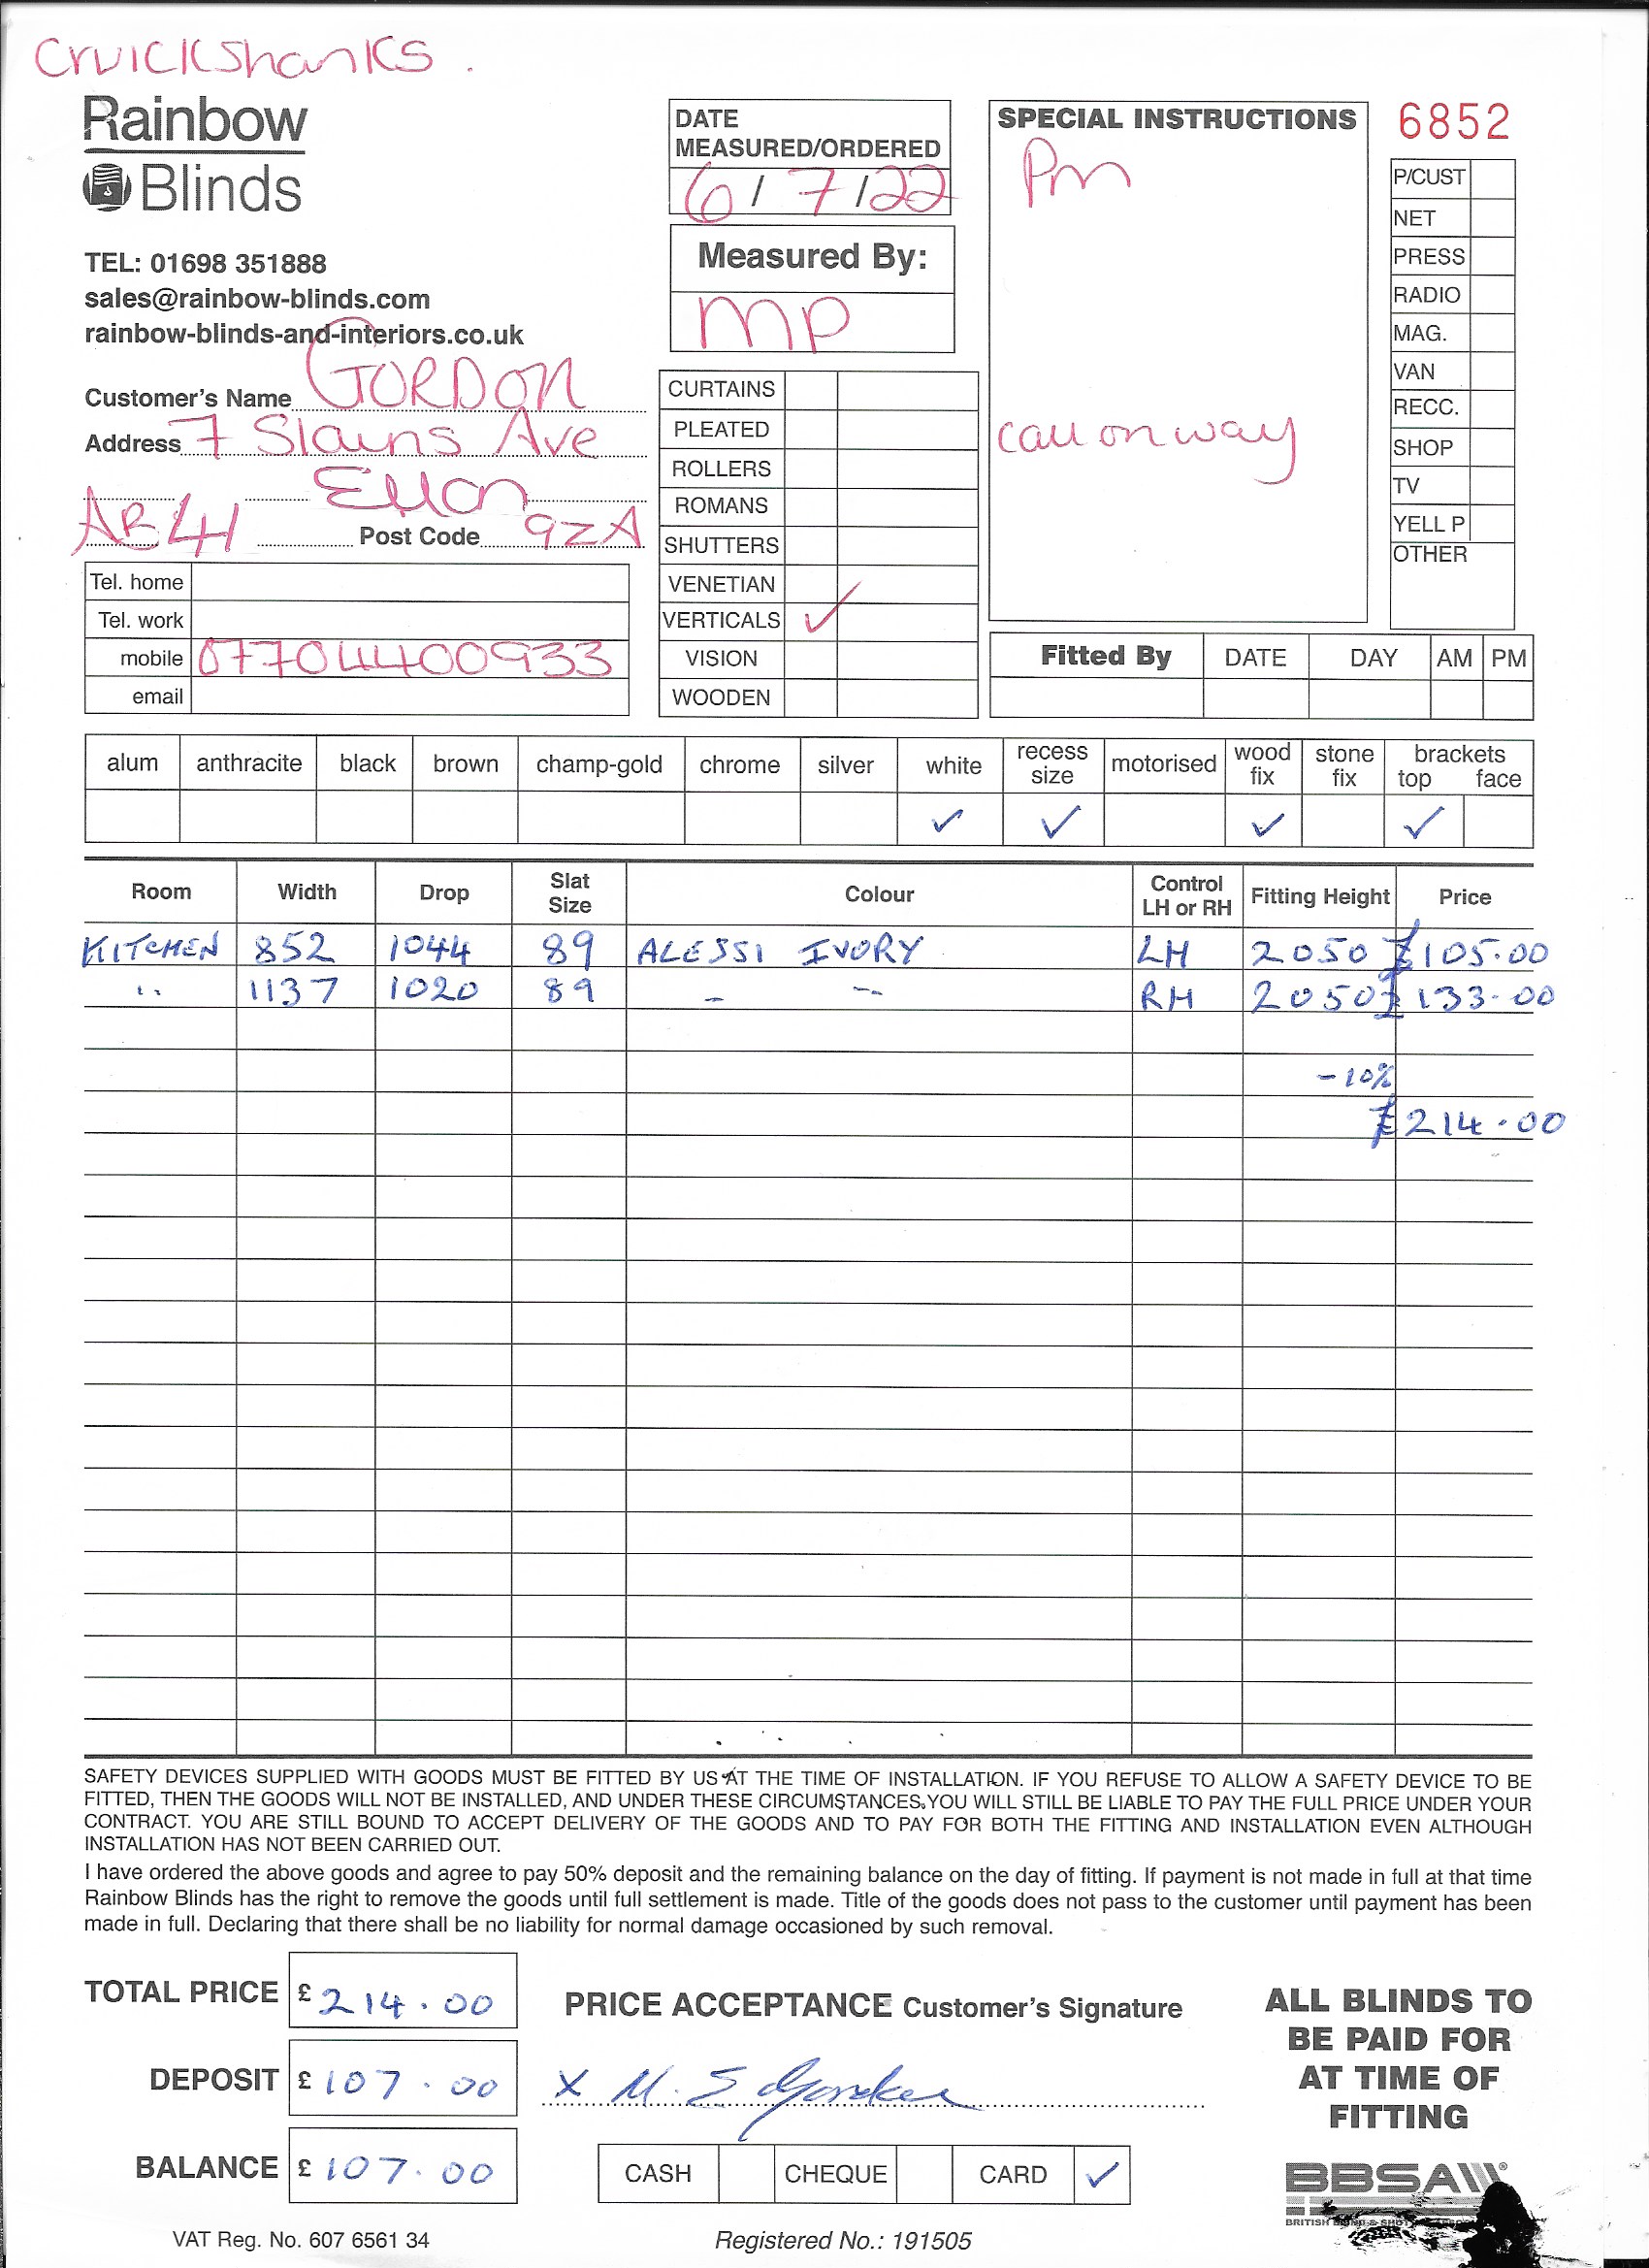 Cruickshanks.
Rainbow
Blinds
TEL: 01698 351888
sales@rainbow-blinds.com
rainbow-blinds-and-interiors.co.uk
Customer's Name GORDON
Address 7 Slains Ave
Ellon
AB41 Post Code 9ZA
Tel. home
Tel. work
mobile 07704400933
email
DATE
MEASURED/ORDERED
6/7/22
Measured By:
MP
CURTAINS
PLEATED
ROLLERS
ROMANS
SHUTTERS
VENETIAN
VERTICALS ✓
VISION
WOODEN
SPECIAL INSTRUCTIONS
Pm
call on way
6852
P/CUST
NET
PRESS
RADIO
MAG.
VAN
RECC.
SHOP
TV
YELL P
OTHER
Fitted By DATE DAY AM PM
alum anthracite black brown champ-gold chrome silver white recess size motorised wood fix stone fix brackets top face
✓ ✓ ✓ ✓
Room Width Drop Slat Size Colour Control LH or RH Fitting Height Price
KITCHEN 852 1044 89 ALESSI IVORY LH 2050 £105.00
" 1137 1020 89 - - RH 2050 £133-00
-10%
£214.00
SAFETY DEVICES SUPPLIED WITH GOODS MUST BE FITTED BY US AT THE TIME OF INSTALLATION. IF YOU REFUSE TO ALLOW A SAFETY DEVICE TO BE
FITTED, THEN THE GOODS WILL NOT BE INSTALLED, AND UNDER THESE CIRCUMSTANCES, YOU WILL STILL BE LIABLE TO PAY THE FULL PRICE UNDER YOUR
CONTRACT. YOU ARE STILL BOUND TO ACCEPT DELIVERY OF THE GOODS AND TO PAY FOR BOTH THE FITTING AND INSTALLATION EVEN ALTHOUGH
INSTALLATION HAS NOT BEEN CARRIED OUT.
I have ordered the above goods and agree to pay 50% deposit and the remaining balance on the day of fitting. If payment is not made in full at that time
Rainbow Blinds has the right to remove the goods until full settlement is made. Title of the goods does not pass to the customer until payment has been
made in full. Declaring that there shall be no liability for normal damage occasioned by such removal.
TOTAL PRICE £ 214.00
DEPOSIT £ 107.00
BALANCE £ 107.00
PRICE ACCEPTANCE Customer's Signature
X M. S
CASH CHEQUE CARD ✓
ALL BLINDS TO
BE PAID FOR
AT TIME OF
FITTING
BBSA
BRITISH
VAT Reg. No. 607 6561 34
Registered No.: 191505